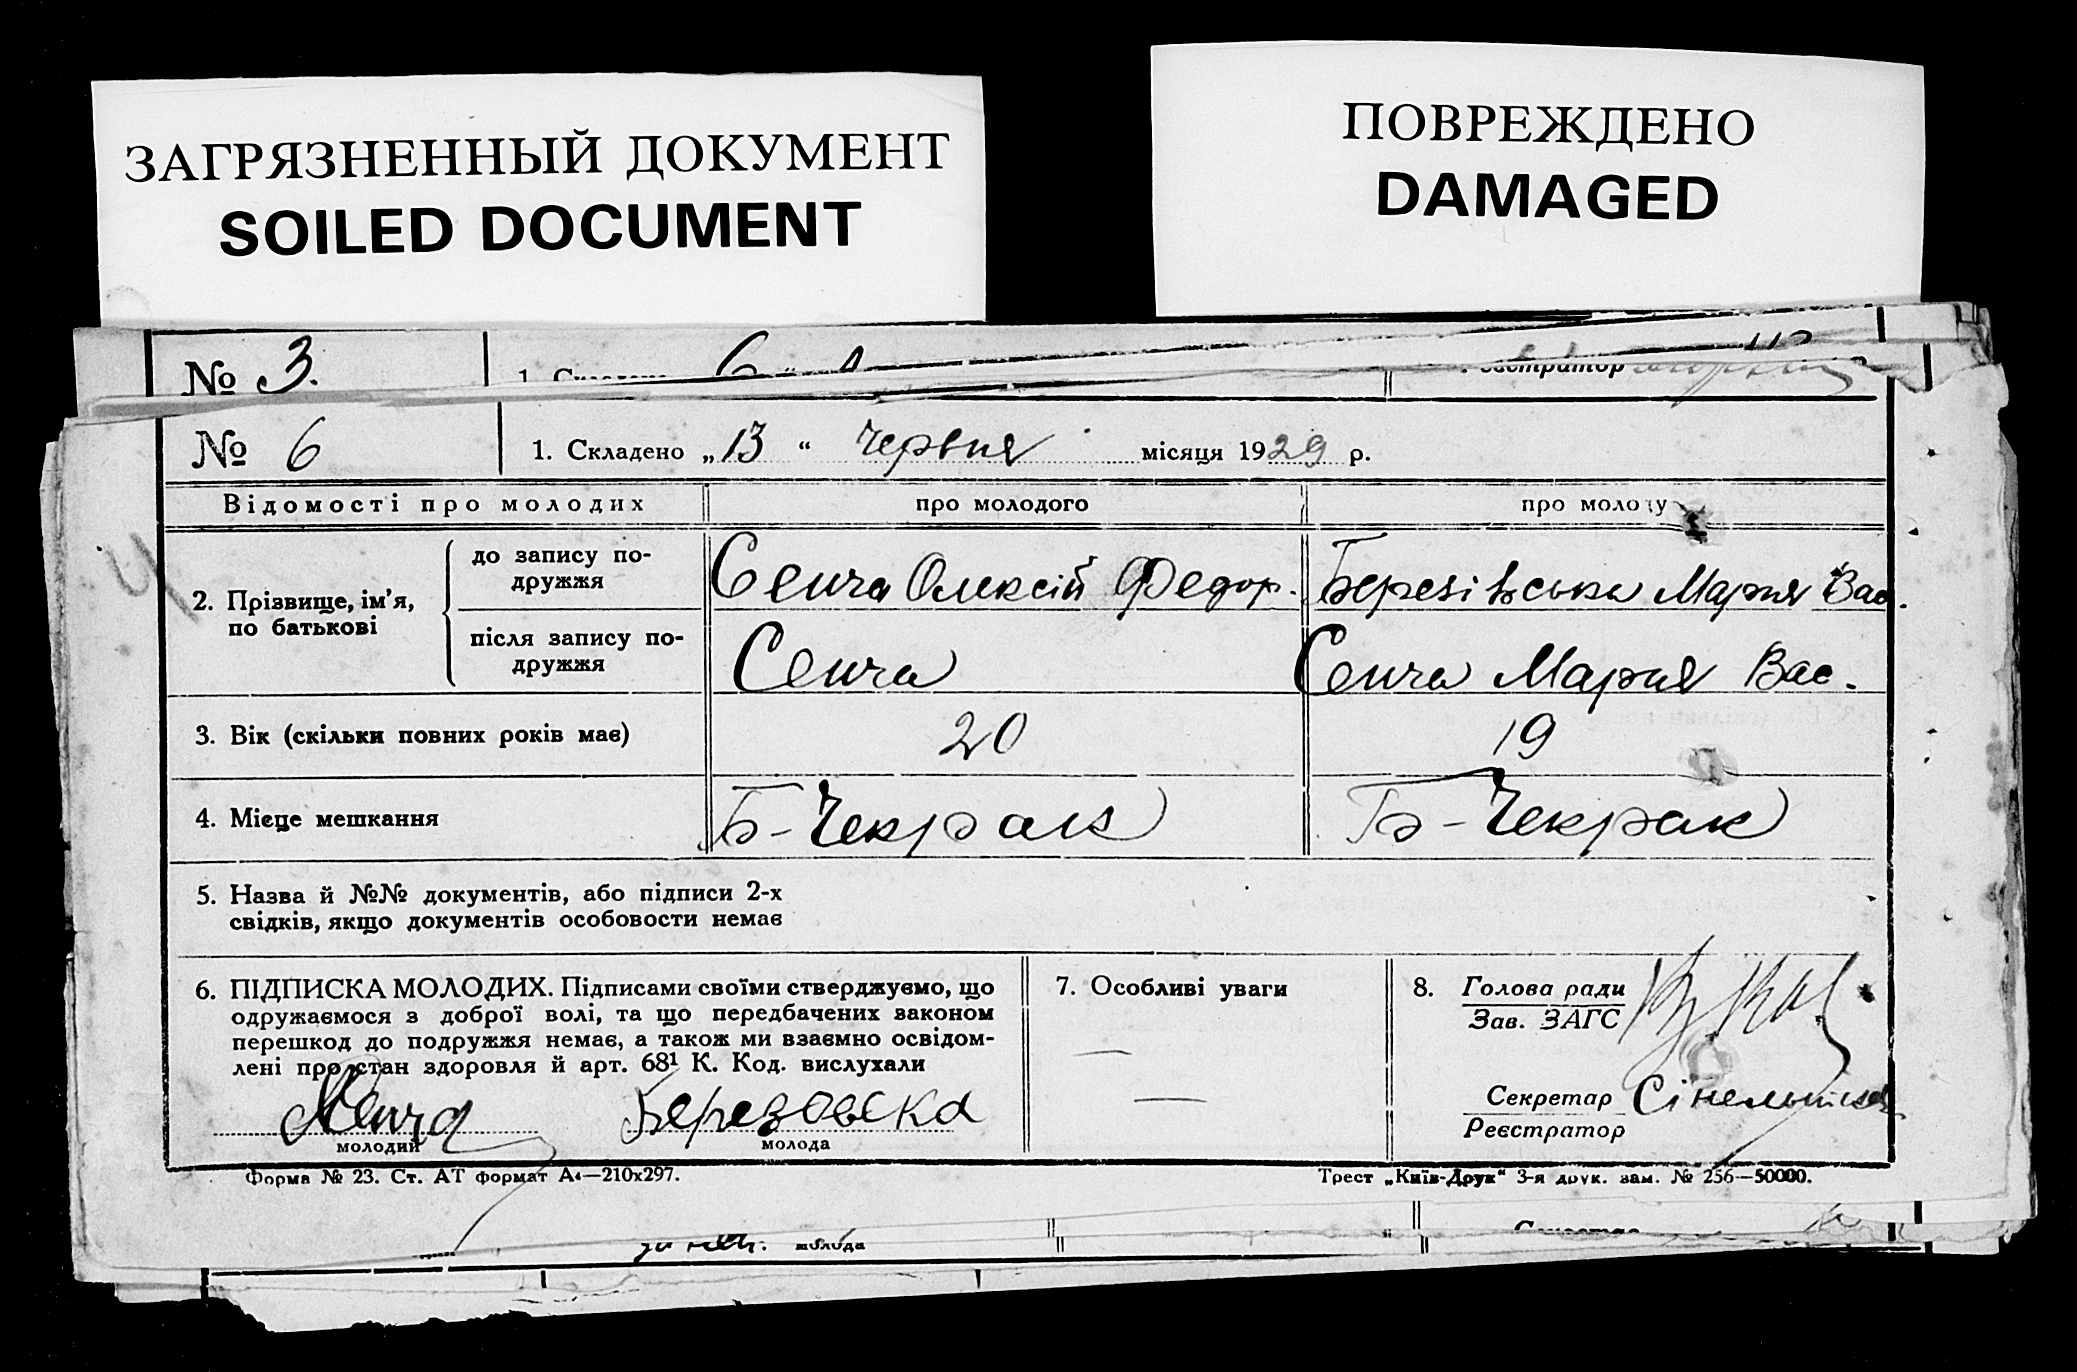 ЗАГРЯЗНЕННЫЙ ДОКУМЕНТ
SOILED DOCUMENT
ПОВРЕЖДЕНО
DAMAGED
№ 3.
№ 6
1. Складено „13“ Червня місяця 1929 р.
Відомості про молодих
про молодого
про молоду
2. Прізвище, ім’я,
по батькові
до запису по-
дружжя
Сенча Олексій Федор.
Березівська Мария Вас.
після запису по-
дружжя
Сенча
Сенча Мария Вас.
3. Вік (скільки повних років має)
20
19
4. Місце мешкання
Б-Чекрак
Б-Чекрак
5. Назва й №№ документів, або підписи 2-х
свідків, якщо документів особовости немає
6. ПІДПИСКА МОЛОДИХ. Підписами своїми стверджуємо, що
одружаємося з доброї волі, та що передбачених законом
перешкод до подружжя немає, а також ми взаємно освідом-
лені про стан здоровля й арт. 68¹ К. Код. вислухали
Сенча
молодий
Березовска
молода
7. Особливі уваги
—
—
8. Голова ради
Зав. ЗАГС
Секретар
Реєстратор
Форма № 23. Ст. АТ формат А4—210х297.
Трест „Київ-Друк“ 3-я друк. зам. № 256—50000.
молода